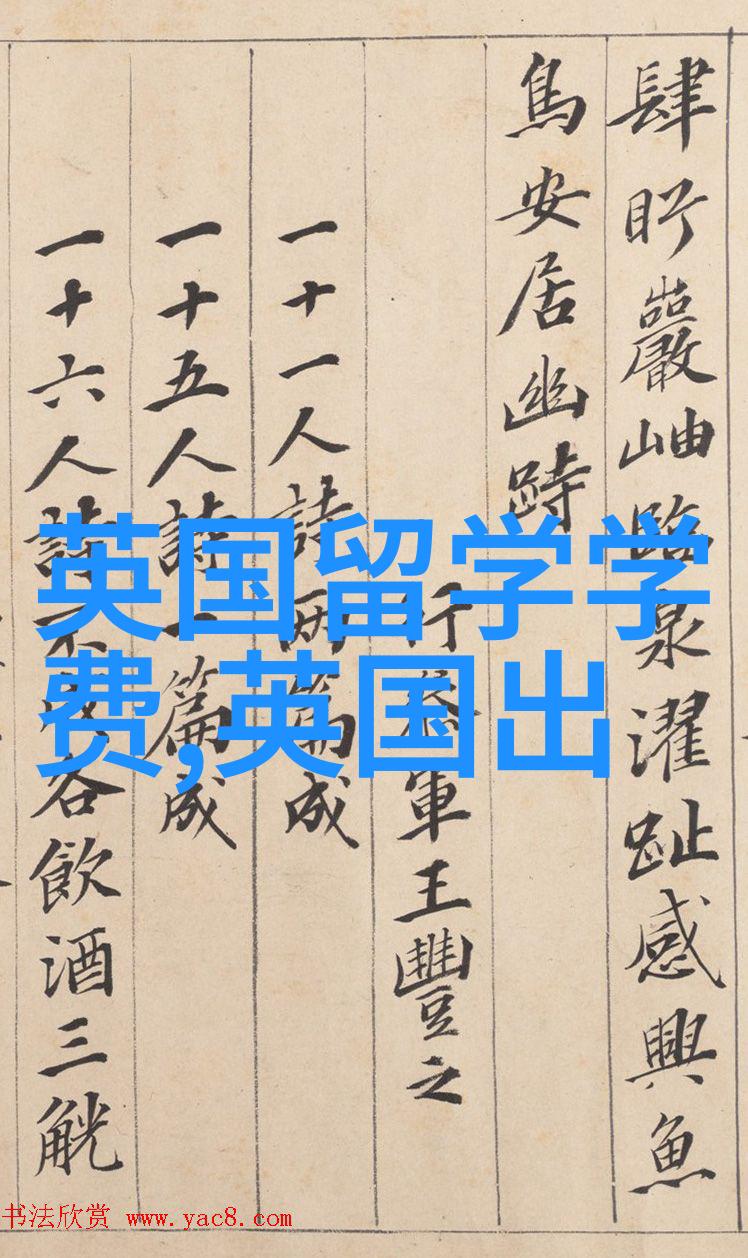 肆盱巖岫臨泉濯趾感興魚
鳥安居幽跱
行參軍王豐之
一十一人詩兩篇成
一十五人詩一篇成
一十六人詩不成各飲酒三觥
英国留学学
费,英国出
书法欣赏 www.yac8.com